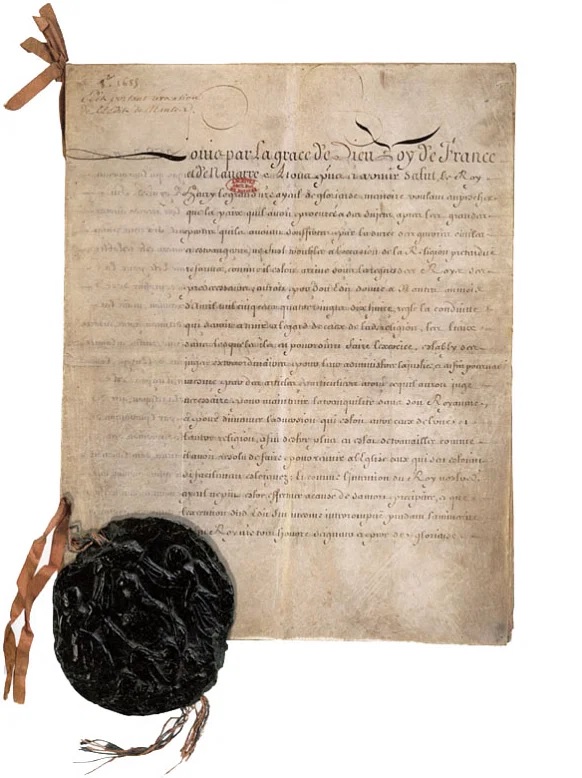 Louis par la grace de Dieu Roy de France
et de Navarre a tous presens et a venir salut, le Roy
Henry le grand nostre ayeul de glorieuse memoire voulant empescher
que la paix qu'il avoit procurée a ses sujets apres les grandes
pertes qu'ils avoient souffertes par la durée des guerres civiles
et estrangeres, ne fust troublée a l'occasion de la Religion pretendue
reformée, comme il estoit arrivé sous les regnes des Roys ses
predecesseurs, auroit par son Edit donné a Nantes au mois
d'Avril mil cinq cens quatre vingts dix huit, reglé la conduite
qui devoit estre tenue a l'egard de ceux de lad. religion, les lieux
dans lesquels ils en pourroient faire l'exercice, estably des
juges extraordinaires pour leur administrer la justice, et enfin pourveu
mesme par des articles particuliers a tout ce qu'il auroit jugé
necessaire pour maintenir la tranquilité dans son Royaume,
et pour diminuer l'aversion qui estoit entre ceux de l'une et
l'autre religion, afin d'estre plus en estat de travailler comme
il avoit resolu de faire pour reunir a l'Eglise ceux qui s'en estoient
si facilement esloignez; Et comme l'intention du Roy nostred.
ayeul ne put estre effectuée a cause de sa mort precipitée, et que
l'execution dud. Edit fut mesme interrompue pendant la minorité
du feu Roy nostre tres honoré seigneur et pere de glorieuse